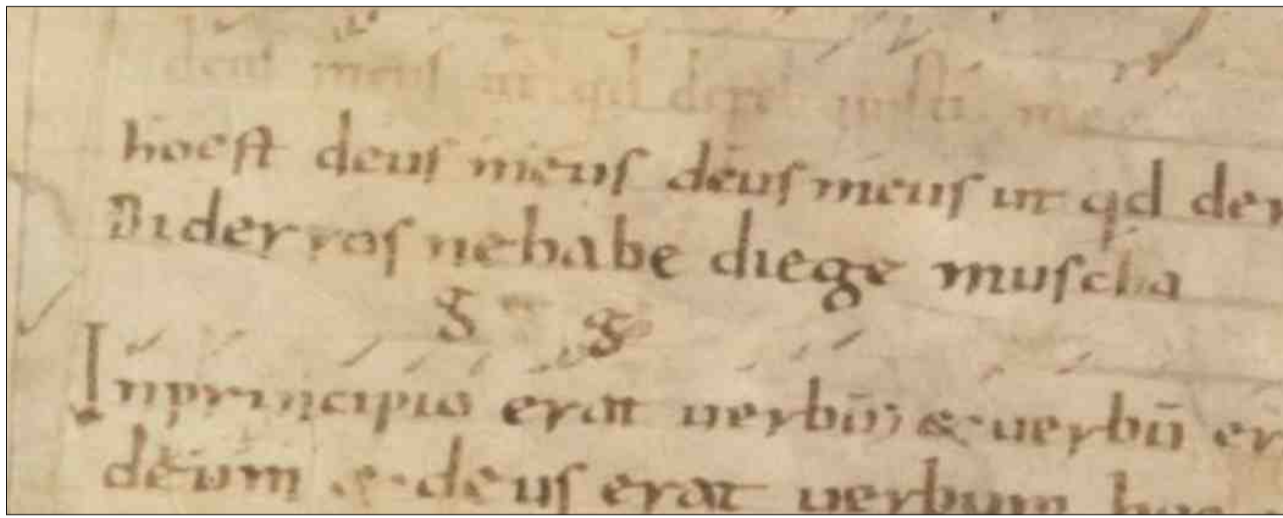 deuſ meuſ ut qd
hoeſt deuſ meuſ deuſ meuſ ut qd der
Biderroſ nehabe diege muſcha
g g
Inprincipio erat uerbū & uerbū er
deum & deuſ erat uerbum hoc